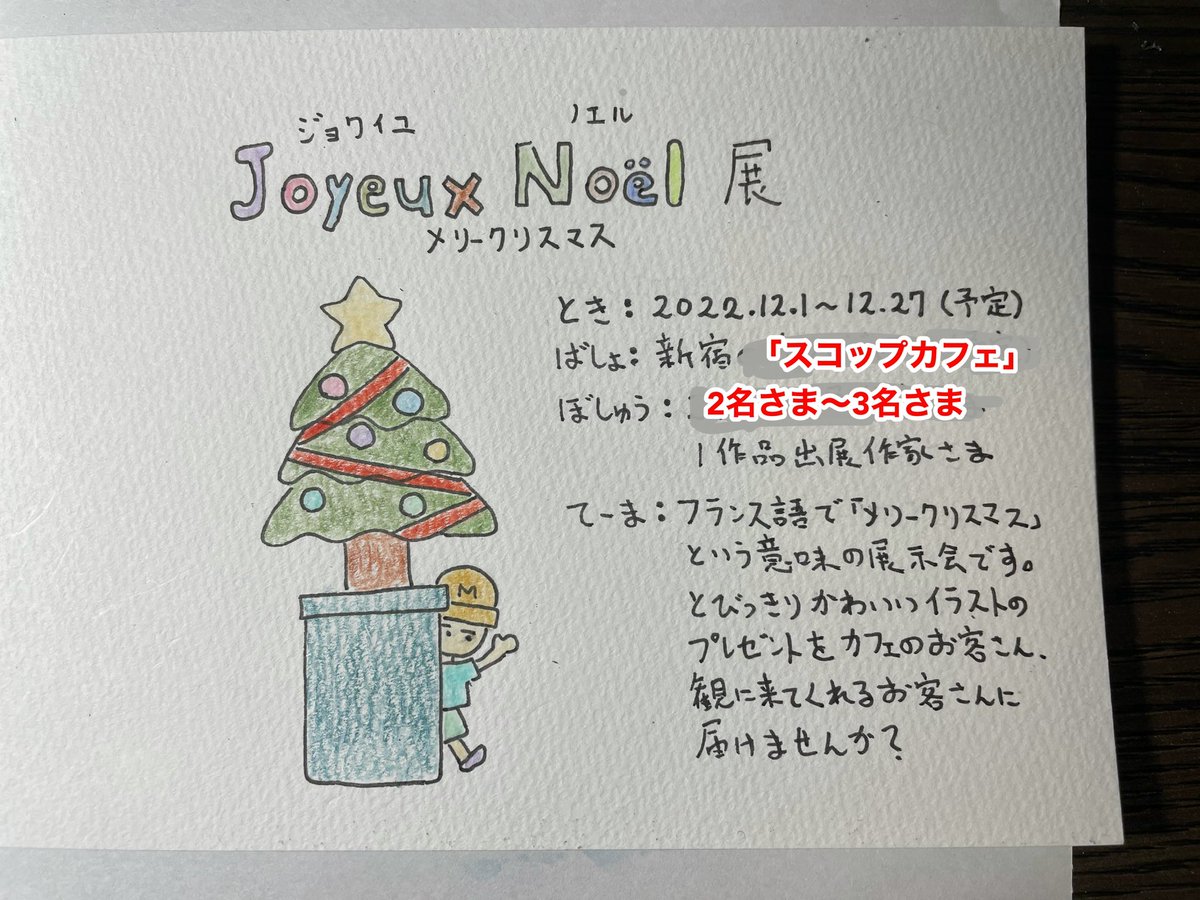 ジョワイユ ノエル
Joyeux Noël 展
メリークリスマス
とき：2022.12.1〜12.27（予定）
ばしょ：新宿「スコップカフェ」
ぼしゅう：2名さま〜3名さま
1作品出展作家さま
てーま：フランス語で「メリークリスマス」
という意味の展示会です。
とびっきりかわいいイラストの
プレゼントをカフェのお客さん、
観に来てくれるお客さんに
届けませんか？
M